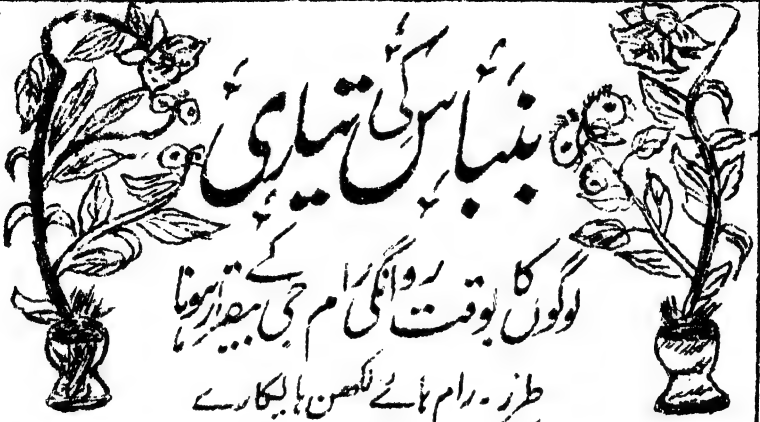 بنباس کی تیاری
لوگوں کا بوقت روانگی رام جی کے بیقرار ہونا
طرز۔ رام ہائے لکھن ہا پکارے